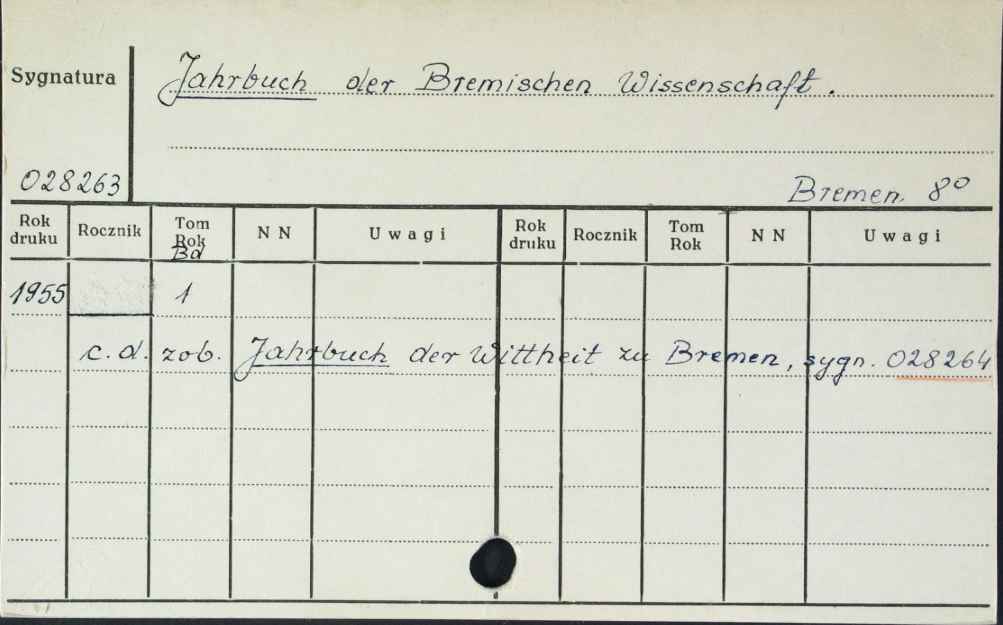 Sygnatura
Jahrbuch der Bremischen Wissenschaft.
028263
Bremen 8º
Rok druku Rocznik Tom Rok Bd NN Uwagi Rok druku Rocznik Tom Rok NN Uwagi
1955 1
c.d. zob. Jahrbuch der Wittheit zu Bremen, sygn. 028264